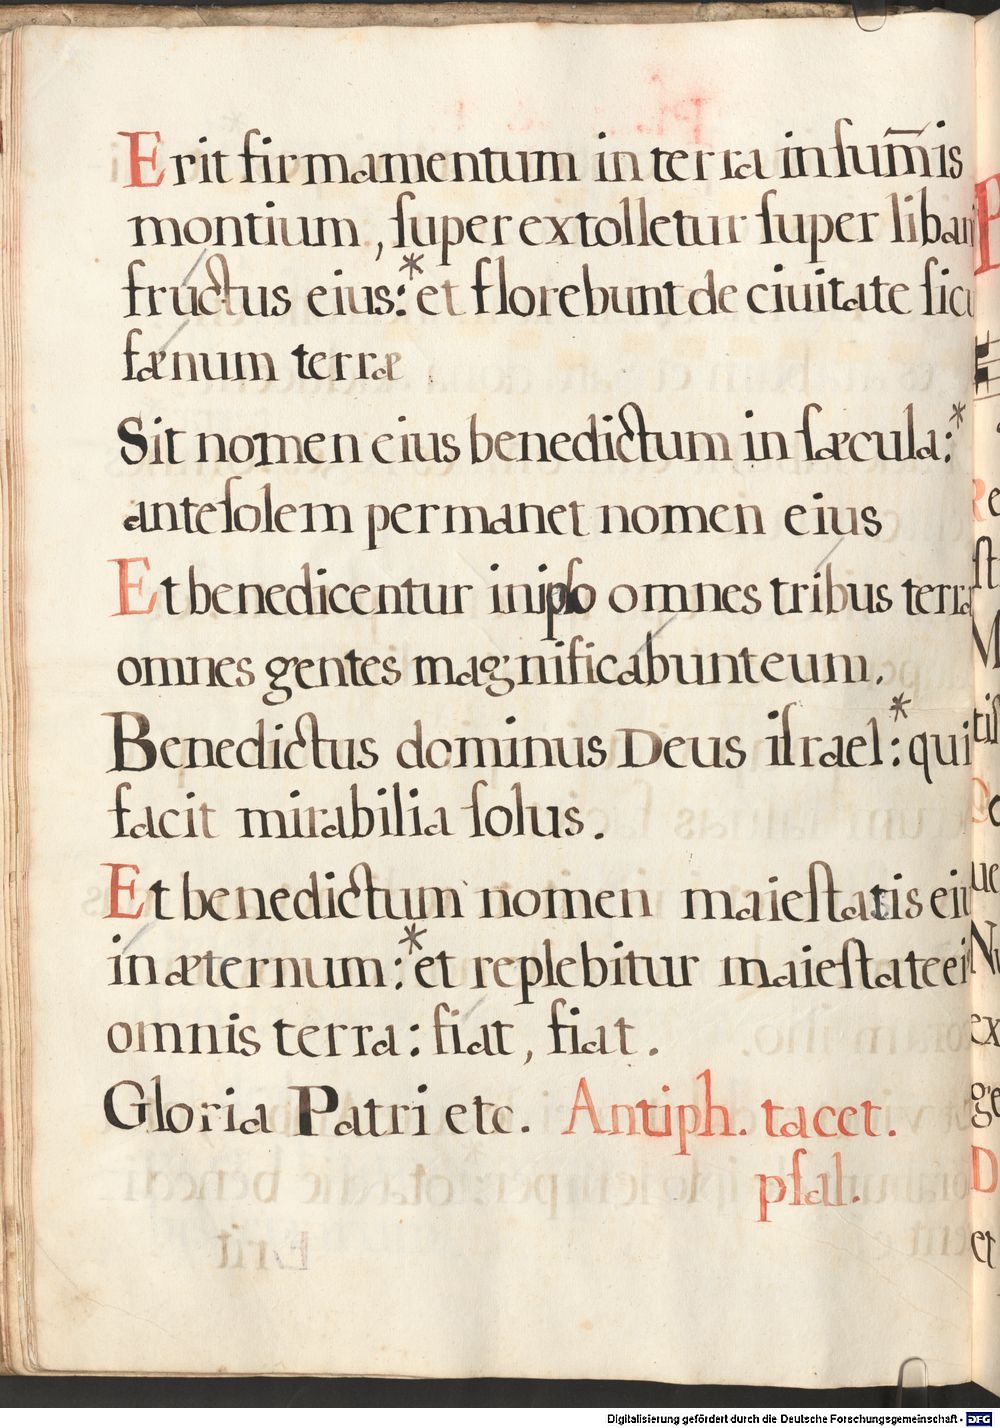 Erit firmamentum in terra in sum̅is
montium, super extolletur super liban
fructus eius:* et florebunt de ciuitate sicu
fænum terræ
Sit nomen eius benedictum in sæcula:*
ante solem permanet nomen eius
Et benedicentur in ipso omnes tribus terræ
omnes gentes magnificabunt eum.
Benedictus dominus Deus israel:* qui
facit mirabilia solus.
Et benedictum nomen maiestatis eiu
in æternum:* et replebitur maiestate ei
omnis terra: fiat, fiat.
Gloria Patri etc. Antiph. tacet.
psal.
Digitalisierung gefördert durch die Deutsche Forschungsgemeinschaft - DFG